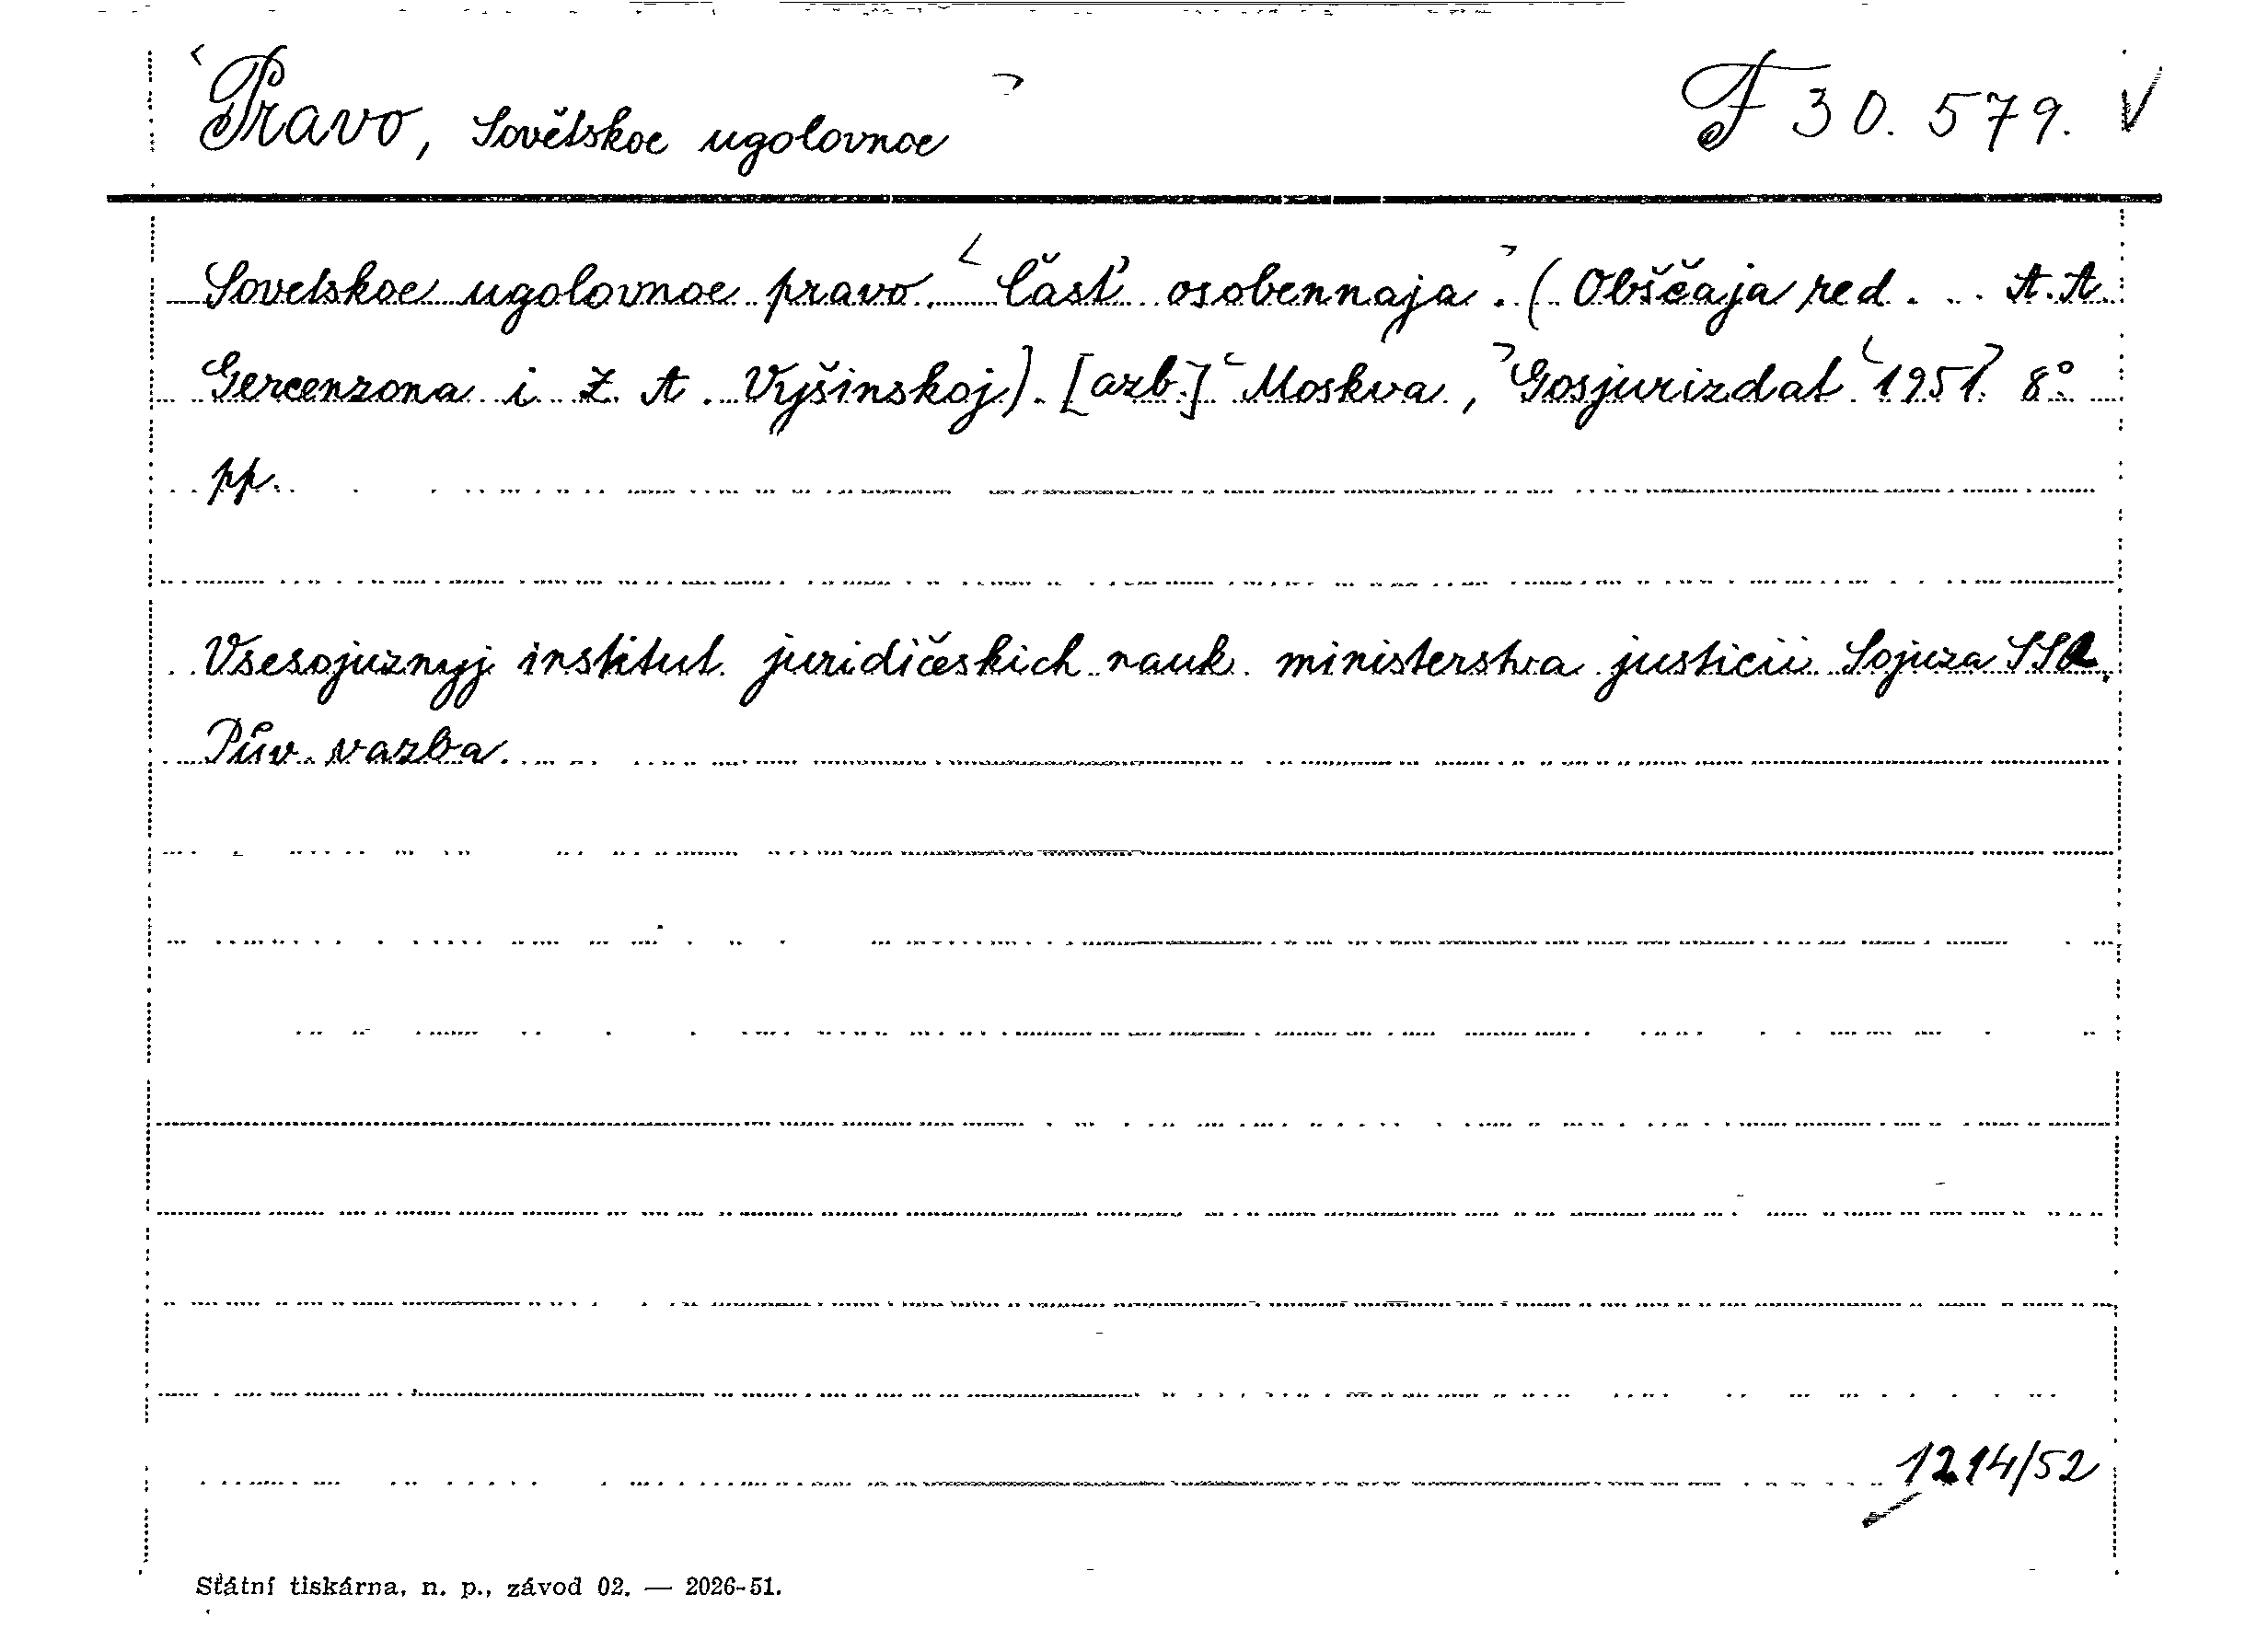 Pravo, Sovětskoe ugolovnoe F 30.579. V
Sovetskoe ugolovnoe pravo. Časť osobennaja. (Obščaja red... A.A.
Gercenzona i Z. A. Vyšinskoj). [azb.] Moskva, Gosjurizdat 1951. 8°
pp.
Vsesojuznyj institut juridičeskich nauk ministerstva justicii Sojuza SSR.
Pův. vazba.
1214/52
Státní tiskárna, n. p., závod 02. — 2026-51.